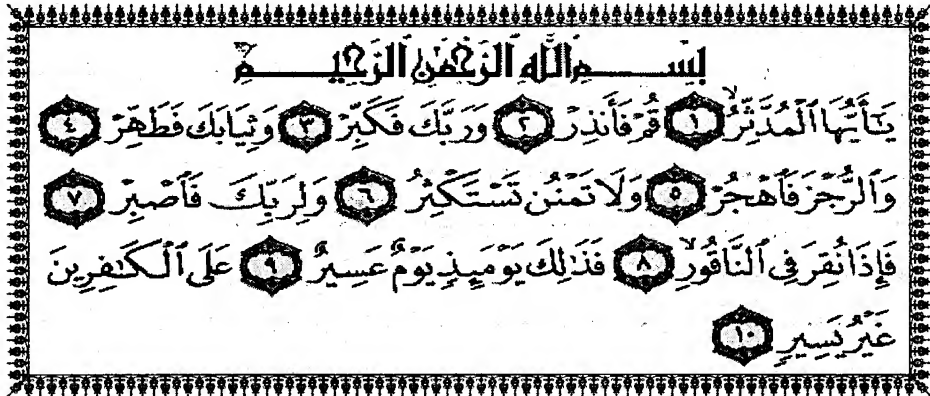 بِسْمِ ٱللَّهِ ٱلرَّحْمَٰنِ ٱلرَّحِيمِ
يَٰٓأَيُّهَا ٱلْمُدَّثِّرُ ١ قُمْ فَأَنذِرْ ٢ وَرَبَّكَ فَكَبِّرْ ٣ وَثِيَابَكَ فَطَهِّرْ ٤
وَٱلرُّجْزَ فَٱهْجُرْ ٥ وَلَا تَمْنُن تَسْتَكْثِرُ ٦ وَلِرَبِّكَ فَٱصْبِرْ ٧
فَإِذَا نُقِرَ فِى ٱلنَّاقُورِ ٨ فَذَٰلِكَ يَوْمَئِذٍ يَوْمٌ عَسِيرٌ ٩ عَلَى ٱلْكَٰفِرِينَ
غَيْرُ يَسِيرٍ ١٠